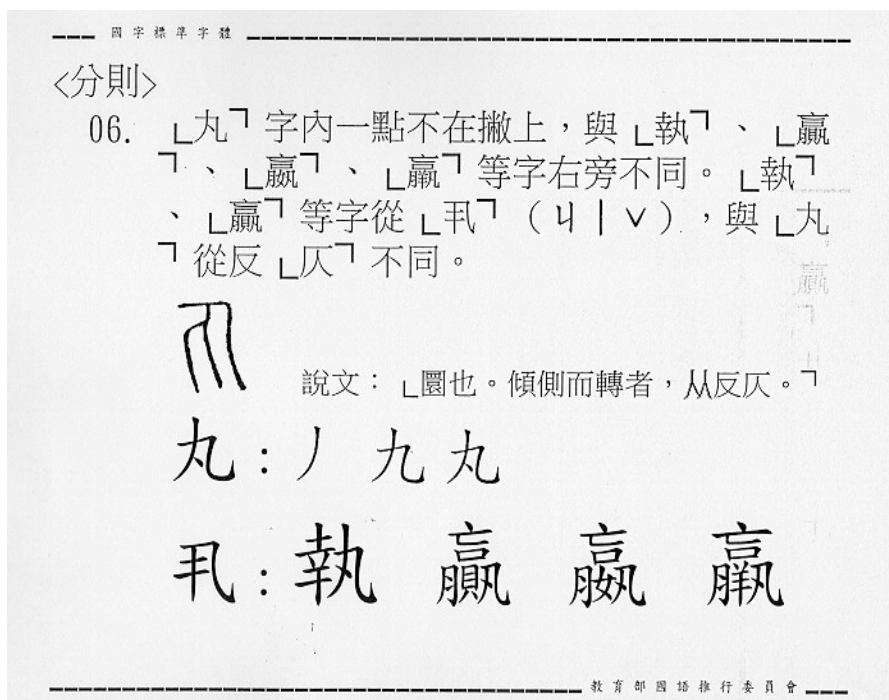 國字標準字體
<分則>
06. ﹂丸﹁字內一點不在撇上，與﹂執﹁、﹂贏
﹁、﹂嬴﹁、﹂羸﹁等字右旁不同。﹂執﹁
、﹂贏﹁等字從﹂丮﹁（ㄐㄧˇ），與﹂丸
﹁從反﹂仄﹁不同。
說文：﹂圜也。傾側而轉者，从反仄。﹁
丸：丿 九 丸
丮：執 贏 嬴 羸
教育部國語推行委員會